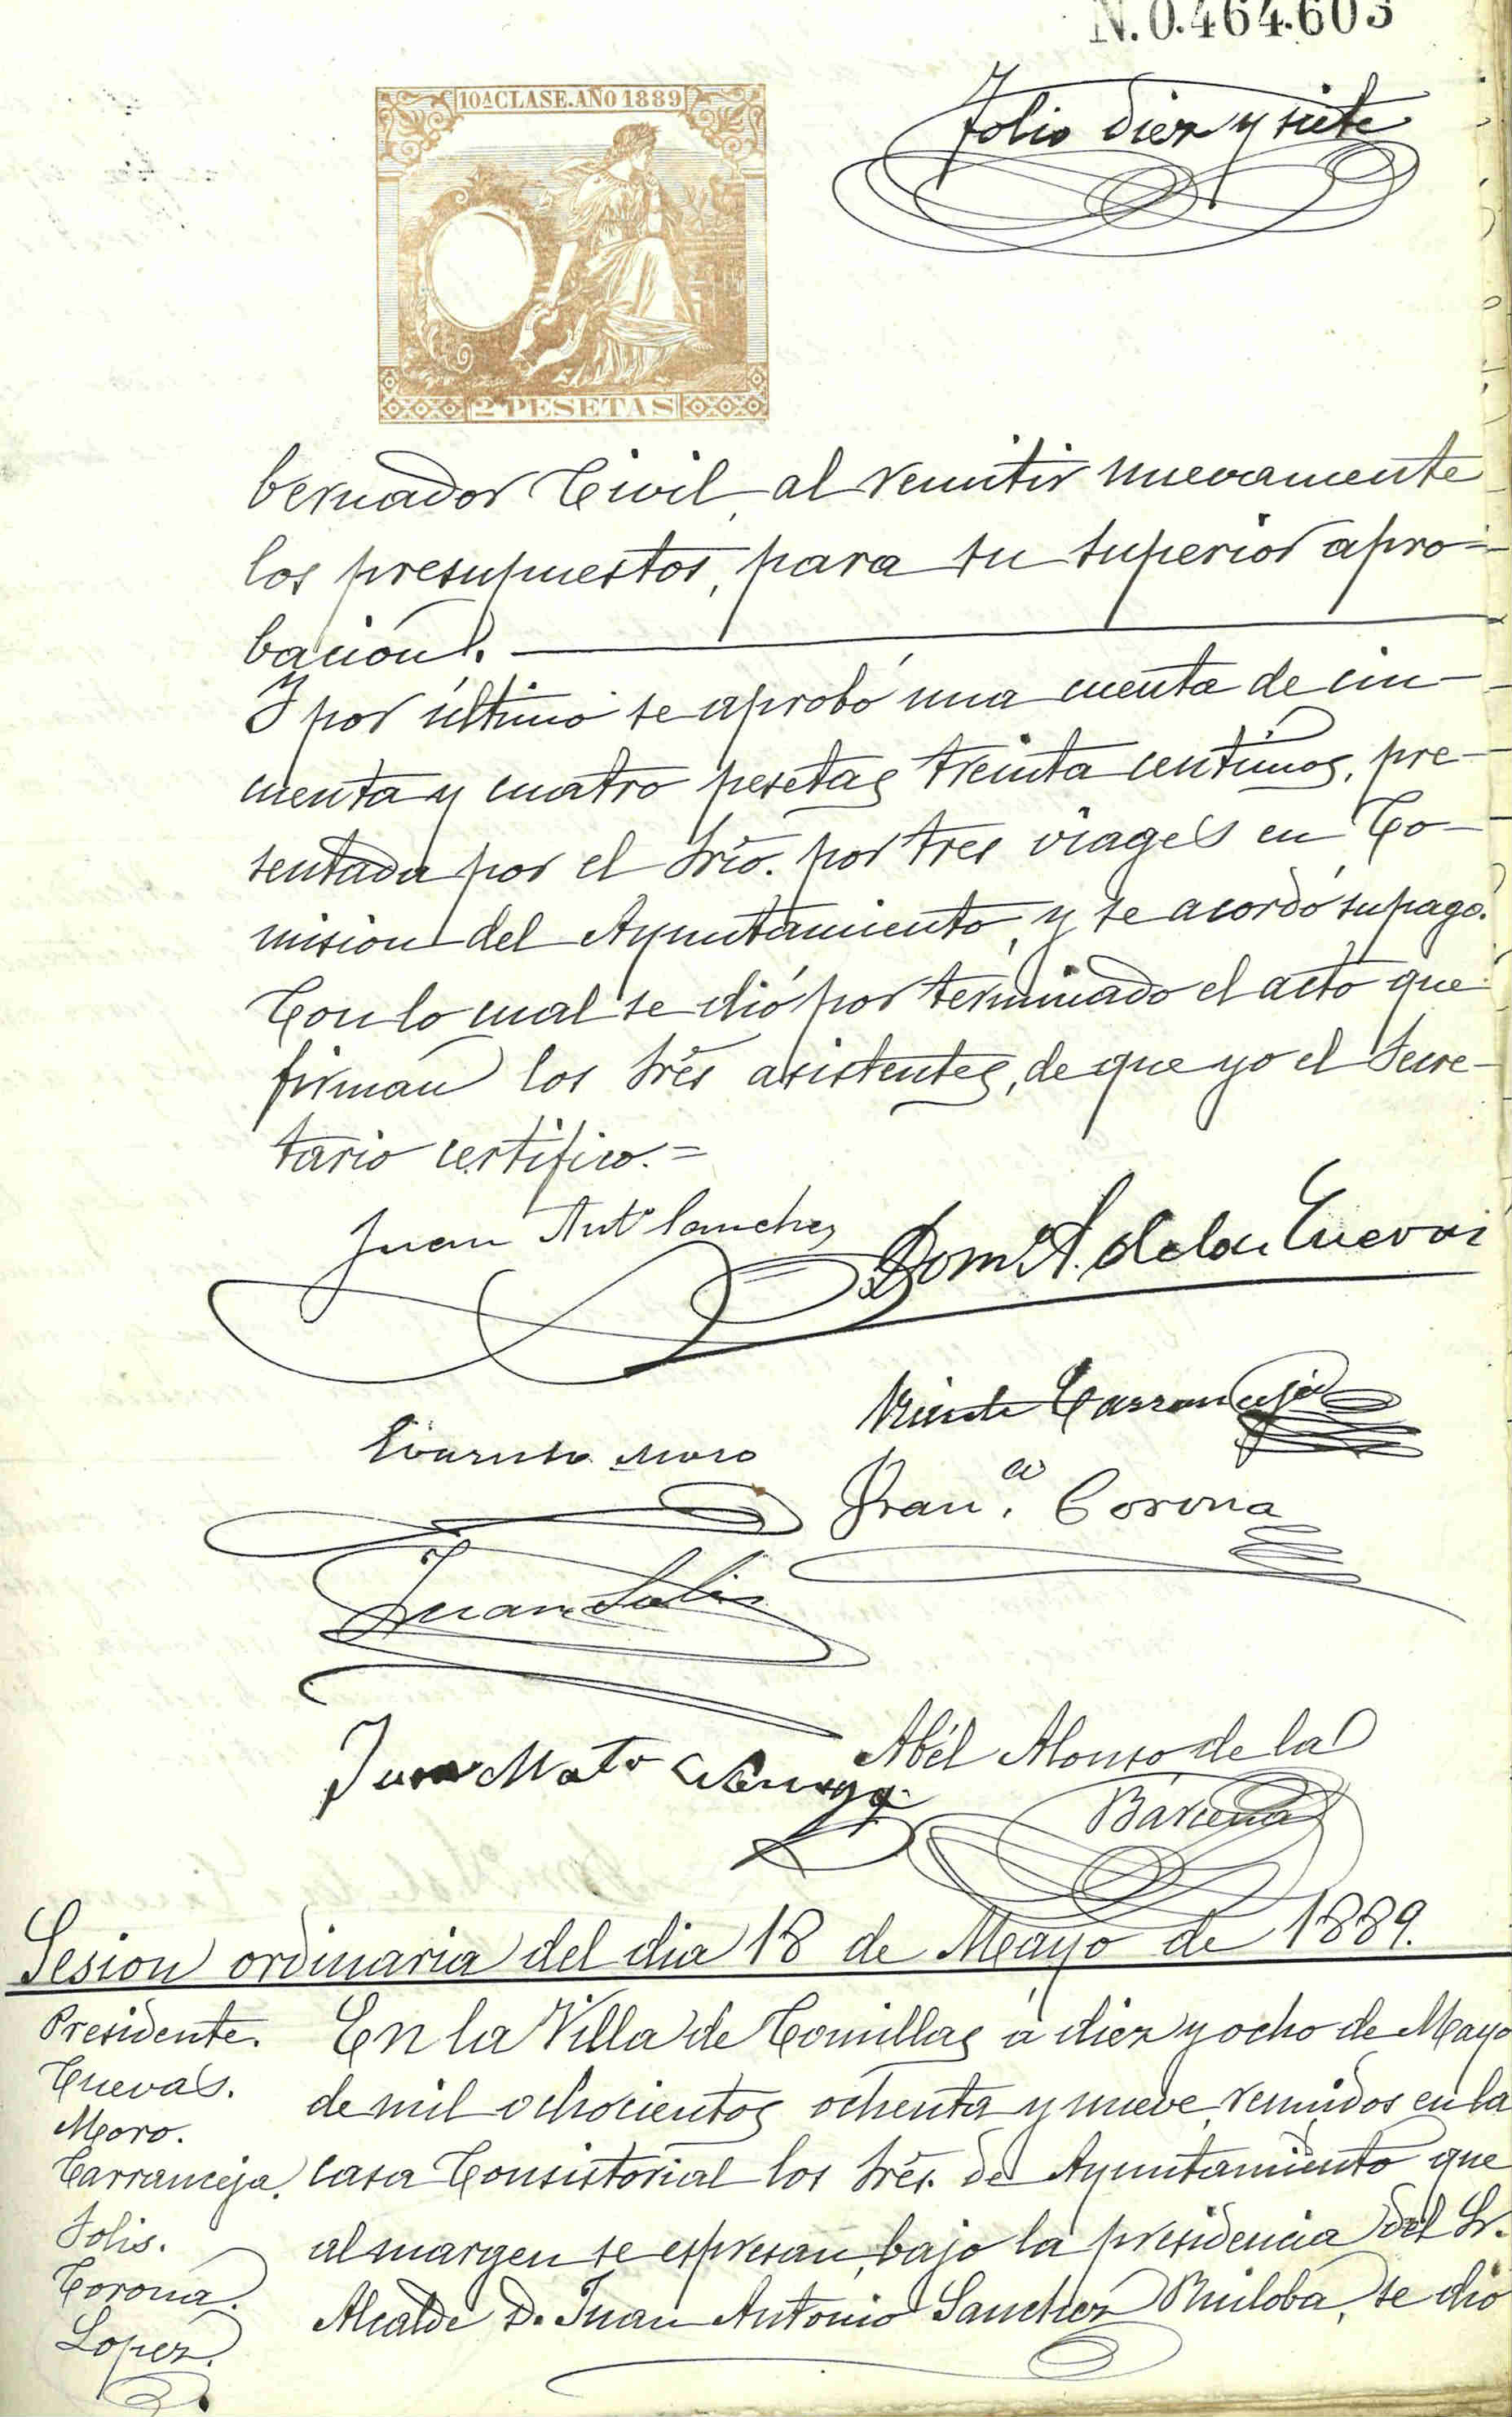 N. 0.464.603
10ª CLASE. AÑO 1889
2 PESETAS
Folio diez y siete
bernador Civil, al remitir nuevamente
los presupuestos, para su superior apro-
bación.
Y por último se aprobó una cuenta de cin-
cuenta y cuatro pesetas treinta centimos, pre-
sentada por el Srio. por tres viages en Co-
mision del Ayuntamiento, y se acordó su pago.
Con lo cual se dió por terminado el acto que
firman los Sres asistentes, de que yo el Secre-
tario certifico.=
Juan Antº Sanchez
Dom A. de las Cuevas
Vicente Carranceja
Evaristo Moro
Franco. Corona
Juan Solis
Juan Mato
Abél Alonso de la
Bárcena
Sesion ordinaria del dia 18 de Mayo de 1889.
Presidente.
Cuevas.
Moro.
Carranceja.
Solis.
Corona.
Lopez.
En la Villa de Comillas á diez y ocho de Mayo
de mil ochocientos ochenta y nueve, reunidos en la
casa Consistorial los Sres. de Ayuntamiento que
al margen se espresan, bajo la presidencia del Sr.
Alcalde D. Juan Antonio Sanchez Ruiloba, se dió